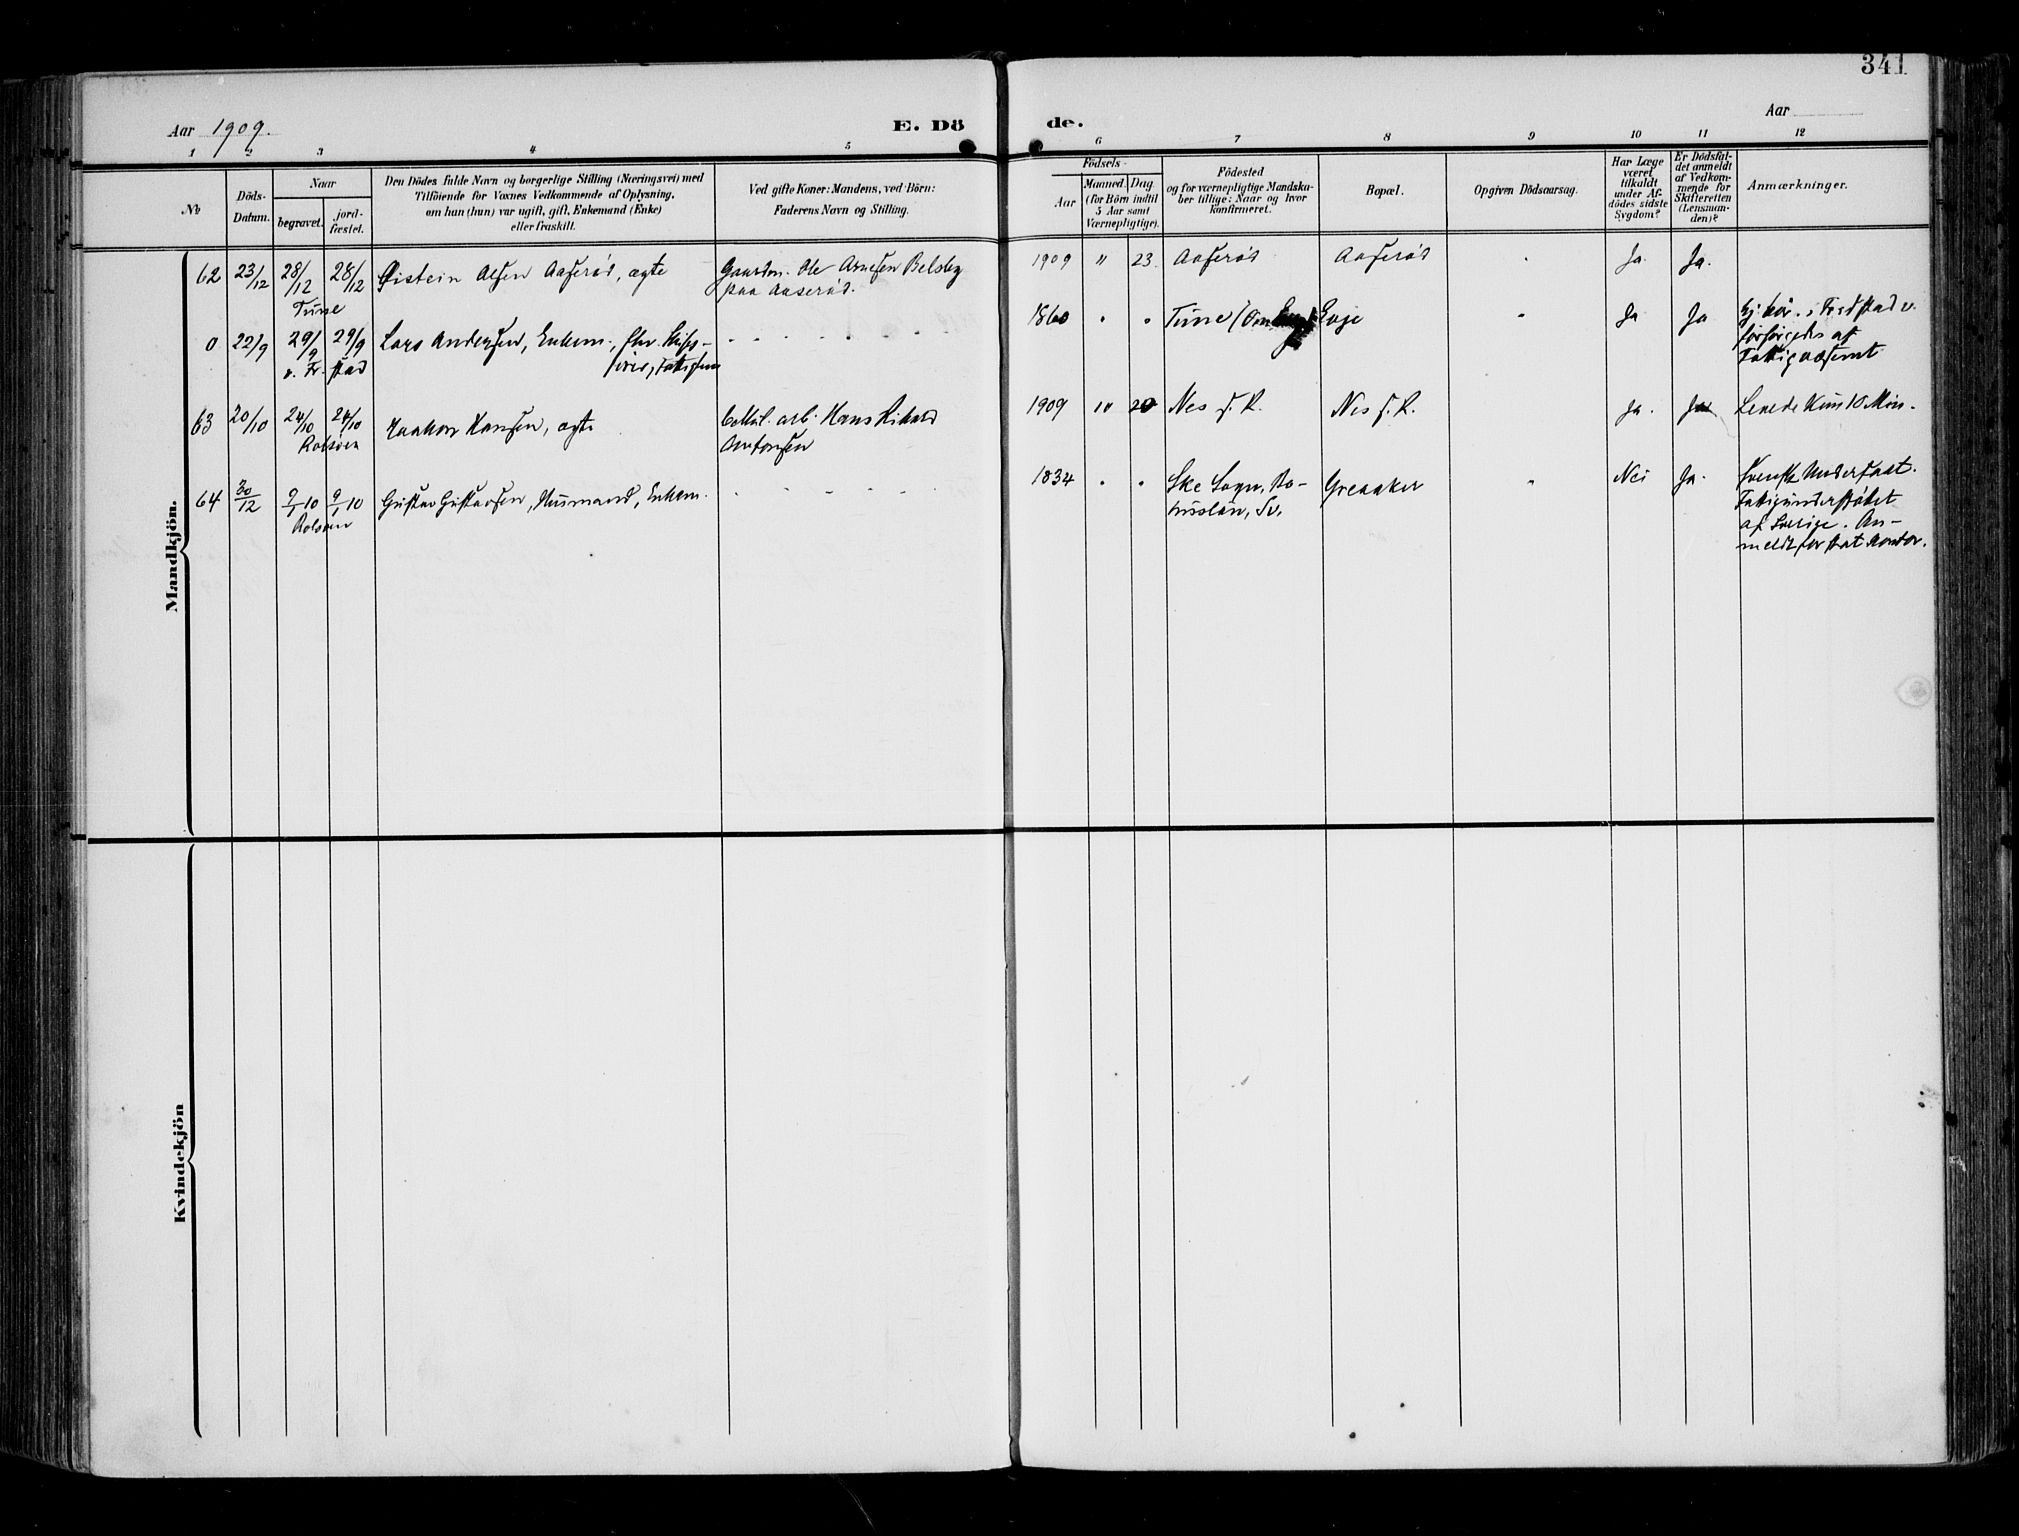 341
Aar 1909.
E. Dö
de.
Aar
1 2 3 4 5 6 7 8 9 10 11 12
No
Döds-
Datum.
Naar
begravet.
jord-
fæstet.
Den Dödes fulde Navn og borgerlige Stilling (Næringsvei) med
Tilföiende for Voxnes Vedkommende af Oplysning,
om han (hun) var ugift, gift, Enkemand (Enke)
eller fraskilt.
Ved gifte Koner: Mandens, ved Börn:
Faderens Navn og Stilling.
Födsels-
Aar
Maaned. Dag
(for Börn indtil
5 Aar samt
Værnepligtige).
Födested
og for værnepligtige Mandska-
ber tillige: Naar og hvor
konfirmeret.
Bopæl.
Opgiven Dödsaarsag.
Har Læge
været
tilkaldt
under Af-
dödes sidste
Sygdom?
Er Dödsfal-
det anmeldt
af Vedkom-
mende for
Skifteretten
(Lensman-
den)?
Anmærkninger.
Mandkjön.
62 23/12 28/12 28/12 Øistein Olsen Aaserød, ægte
Tune
Gaardm. Ole Arnesen Belsby
paa Aaserød.
1909 " 23. Aaserød Aaserød Ja. Ja.
0 22/9 29/9 29/9 Lars Andersen, Enkem.,
v. Fr.stad
1860 Tune Evje Ja Ja
i Fredstad v.
af
Fattigvæsenet
63 20/10 24/10 24/10 Haakon Hansen, ægte
Rolsøen
arb. Hans Rikard
Antonsen
1909 10 20 Nes f. R. Nes f. R. Ja. Ja Levede kun 10 Min.
64 30/12 9/1 10 9/1 10 Gustav Gustavsen, Husmand, Enkem.
Rolsøen
1834 Ske Sogn, Bo-
huslän, Sv. Greaaker Nei Ja. Svensk Undersaat.
Fattigunderstøttet
af Sverige. An-
meldt for
Kvindekjön